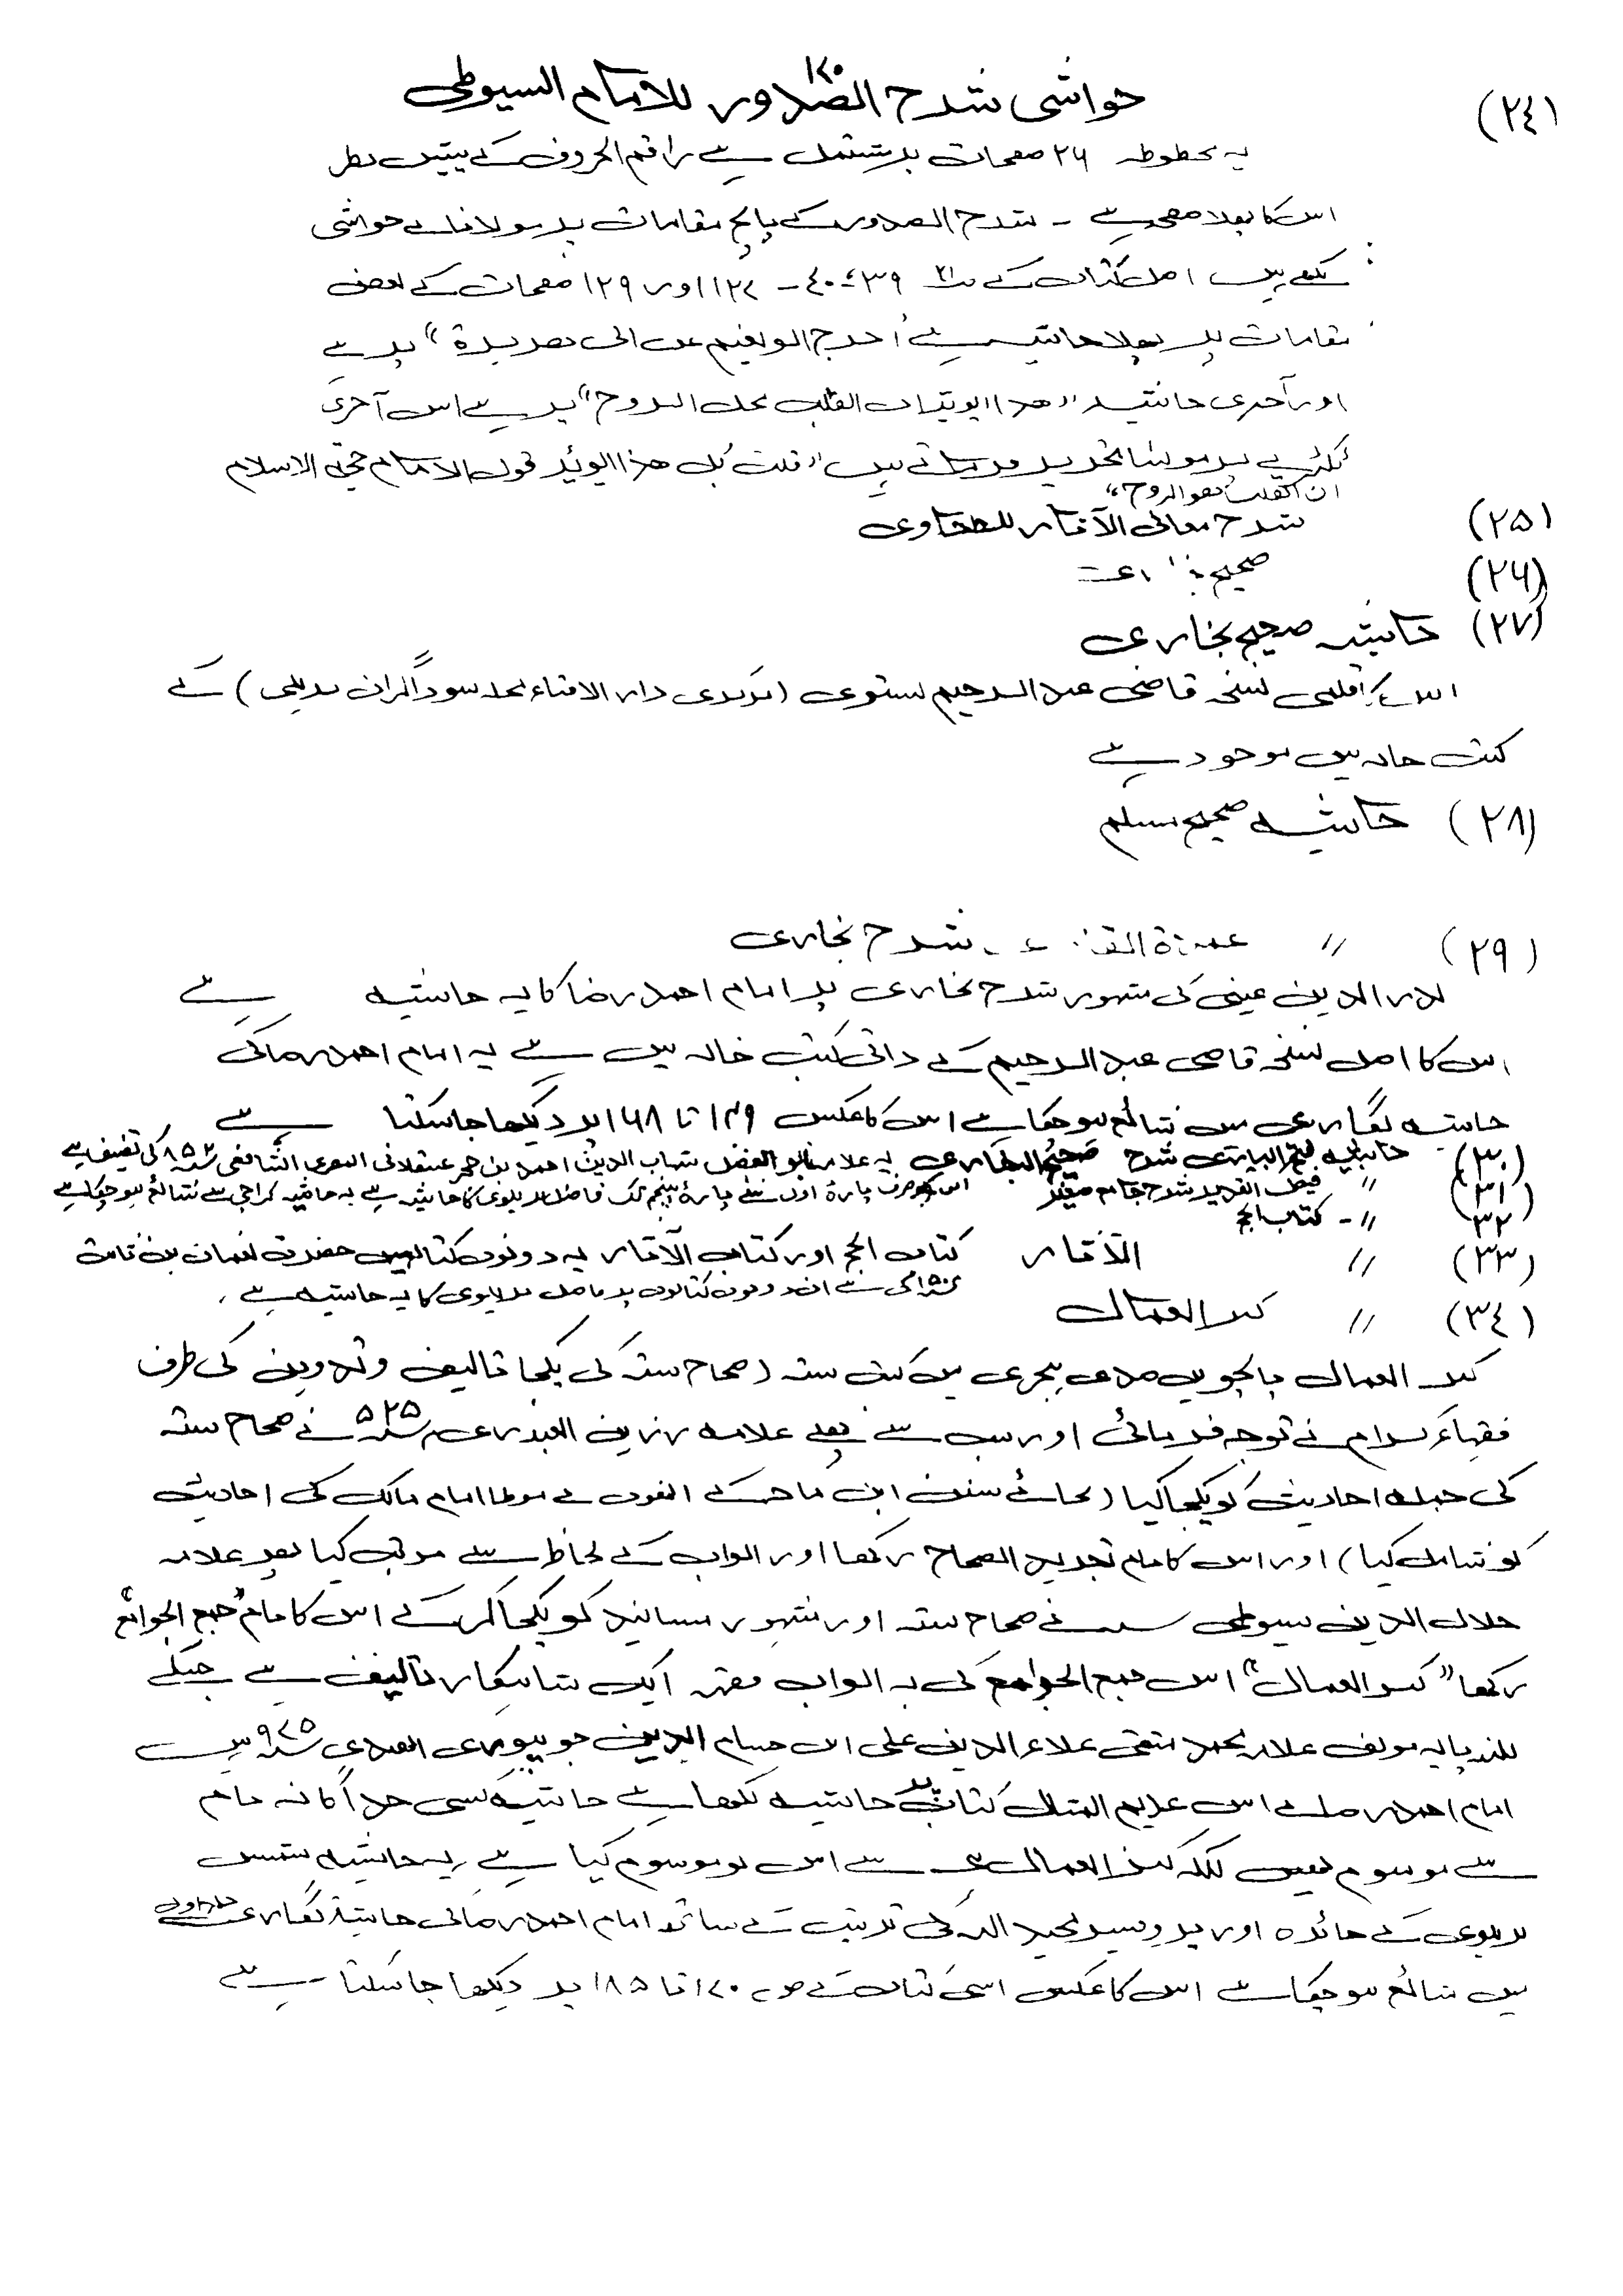 ۱۷۰
(۲٤) حواشی شرح الصدور للامام السیوطی
یہ مخطوطہ ۲۶ صفحات پر مشتمل ہے راقم الحروف کے پیش نظر
اس کا پہلا صفحہ ہے ۔ شرح الصدور کے پانچ مقامات پر مولانا نے حواشی
لکھے ہیں اصل کتاب کے ۳۹، ٤۰ ۔ ۱۲۷ اور ۱۲۹ صفحات کے بعض
مقامات پر پہلا حاشیہ ہے اخرج ابو نعیم عن ابی ھریرۃ“ پر ہے
اور آخری حاشیہ ”ھذا یوید ان القلب محل الروح“ پر ہے اس آخری
ٹکڑے پر مولانا تحریر فرماتے ہیں ”قلت بل ھذا یوئید قول الامام حجۃ الاسلام
ان القلب ھو الروح“
(۲۵) شرح معانی الآثار للطحاوی
(۲۶) صحیح
(۲۷) حاشیہ صحیح بخاری
اس کا قلمی نسخہ قاضی عبدالرحیم بستوی (مرکزی دار الافتاء محلہ سوداگران بریلی) کے
کتب خانہ میں موجود ہے
(۲۸) حاشیہ صحیح مسلم
(۲۹) 〃 عمدۃ القاری شرح بخاری
بدر الدین عینی کی مشہور شرح بخاری پر امام احمد رضا کا یہ حاشیہ ہے
اس کا اصل نسخہ قاضی عبدالرحیم کے ذاتی کتب خانہ میں ہے یہ امام احمد رضا کی
حاشیہ نگاری میں شائع ہو چکا ہے اس کا عکس ۱٤۹ تا ۱۶۸ پر دیکھا جا سکتا ہے
(۳۰) حاشیہ فتح الباری شرح صحیح البخاری یہ علامہ ابو الفضل شہاب الدین احمد بن حجر عسقلانی المصری الشافعی ۸۵۲ کی تصنیف ہے
(۳۱) 〃 فیض القدیر شرح جامع صغیر اس پر صرف پارۂ اول سے پارۂ پنجم تک فاضل بریلوی کا حاشیہ ہے یہ حاشیہ کراچی سے شائع ہو چکا ہے
۳۲ 〃 - کتاب الحج
(۳۳) 〃 الآثار کتاب الحج اور کتاب الآثار یہ دونوں کتابیں حضرت نعمان بن ثابت
۱۵۰ کی ہے ان دونوں کتابوں پر فاضل بریلوی کا یہ حاشیہ ہے ۔
(۳٤) 〃 کنز العمال
کنز العمال پانچویں صدی ہجری میں کتب ستہ (صحاح ستہ کی یکجا تالیف و تدوین کی طرف
فقہاء کرام نے توجہ فرمائی اور سب سے پہلے علامہ رزین العبدری ۵۲۵ نے صحاح ستہ
کی جملہ احادیث کو یکجا کیا (بجائے سنن ابن ماجہ کے انھوں نے موطا امام مالک کی احادیث
کو شامل کیا) اور اس کا نام تجرید الصحاح رکھا اور ابواب کے لحاظ سے مرتب کیا بعد علامہ
جلال الدین سیوطی نے صحاح ستہ اور مشہور مسانید کو یکجا کر کے اس کا نام ”جمع الجوامع“
رکھا ”کنز العمال“ اس جمع الجوامع کی بہ ابواب فقہ ایک شاہکار تالیف ہے جسکے
بلند پایہ مولف علامہ محمد متقی علاء الدین علی ابن حسام الدین جونپوری الھندی ۹۷۵ ہیں
امام احمد رضا نے اس عدیم المثال کتاب پر حاشیہ لکھا ہے حاشیہ کسی جداگانہ نام
سے موسوم نہیں بلکہ کنز العمال ہی سے اس کو موسوم کیا ہے یہ حاشیہ شمس
بریلوی کے جائزہ اور پروفیسر مجید اللہ کی ترتیب کے ساتھ امام احمد رضا کی حاشیہ نگاری جلد اول
میں شائع ہو چکا ہے اس کا عکس اسی کتاب کے ص ۱۷۰ تا ۱۸۵ پر دیکھا جا سکتا ہے